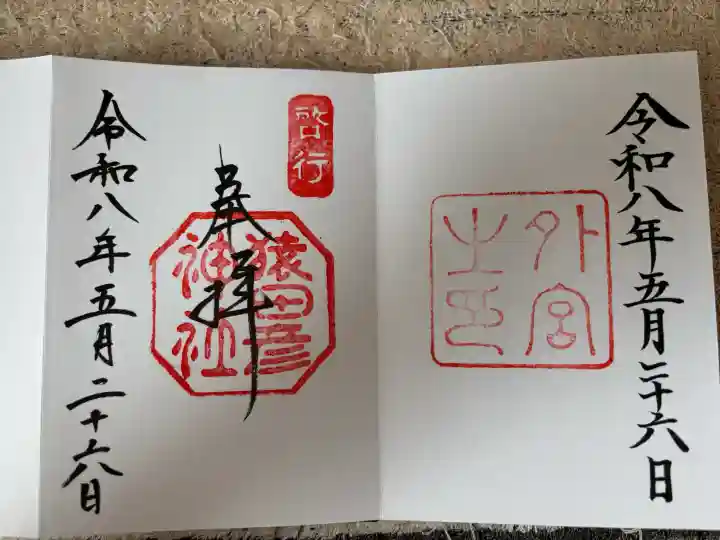 令和八年五月二十六日
外宮
之印
啓行
奉拝
猿田彦
神社
令和八年五月二十六日